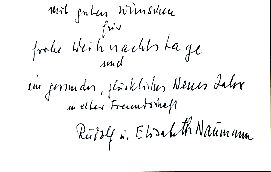 mit guten Wünschen
für
frohe Weihnachtstage
und
ein gesundes, glückliches Neues Jahr
in alter Freundschaft
Rudolf u. Elisabeth Naumann